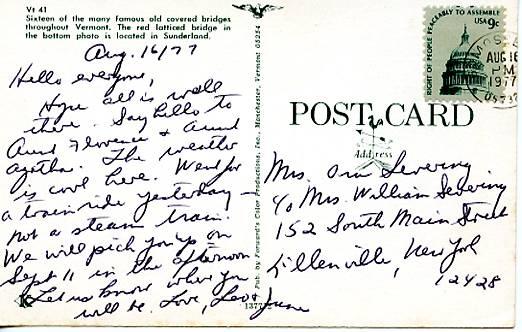 Vt 41
Sixteen of the many famous old covered bridges
throughout Vermont. The red latticed bridge in
the bottom photo is located in Sunderland.
Aug. 16/77
Hello everyone,
Hope all is well
there. Say hello to
Aunt Florence & Aunt
Agatha. The weather
is cool here. Went for
a train ride yesterday –
not a steam train.
We will pick you up on
Sept 11 in the afternoon
Let us know where you
will be. Love, Leo & June
Pub. by Forward's Color Productions, Inc., Manchester, Vermont 05254
POST CARD
Address
RIGHT OF PEOPLE PEACEABLY TO ASSEMBLE
USA 9c
AUG 16
PM
1977
Mrs. Severing
c/o Mrs. William Severing
152 South Main Street
Ellenville, New York
12428